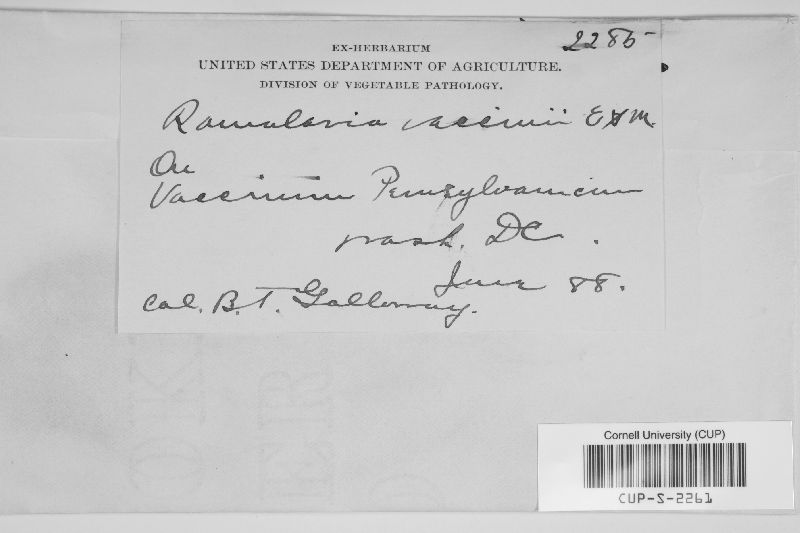 2285
EX-HERBARIUM
UNITED STATES DEPARTMENT OF AGRICULTURE.
DIVISION OF VEGETABLE PATHOLOGY.
Ramularia vaccinii E & M.
On
Vaccinium Pennsylvanicum
Wash. DC.
June 88.
Col. B. T. Galloway.
Cornell University (CUP)
CUP-S-2261